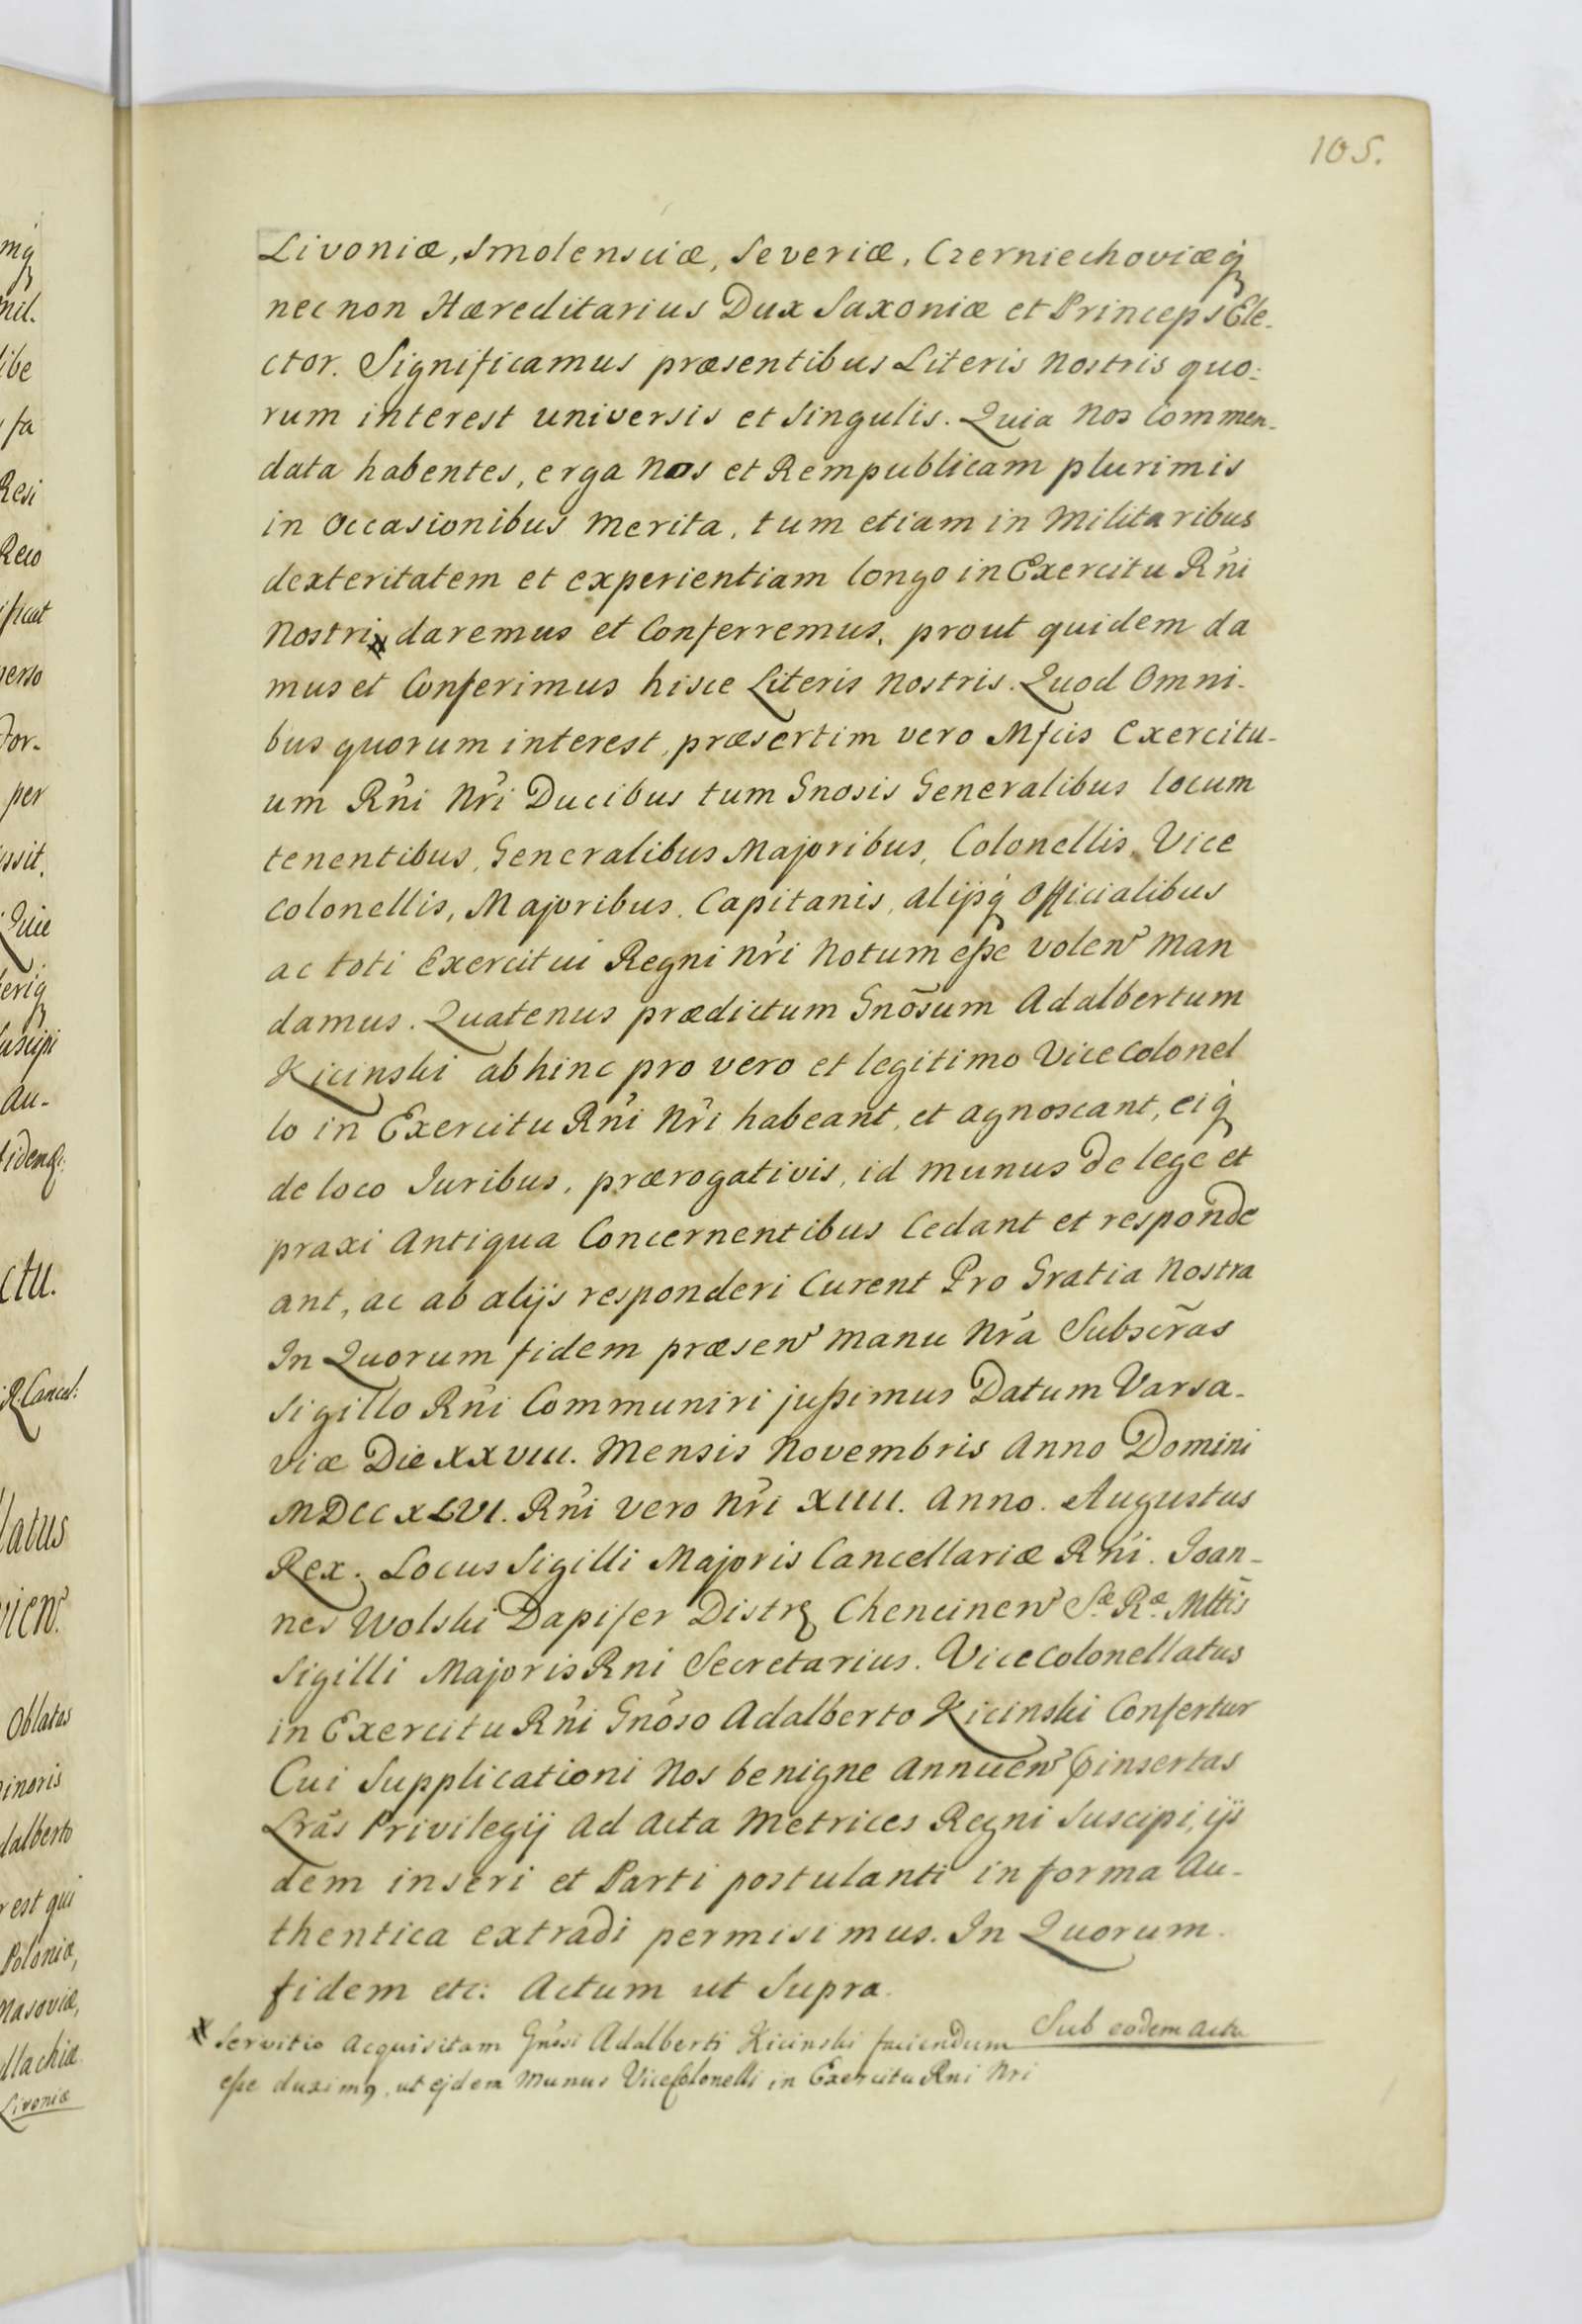 105.
Livoniæ, Smolensciæ, Severiæ, Czerniechoviæq́
nec non Hæreditarius Dux Saxoniæ et Princeps Ele-
ctor. Significamus præsentibus Literis Nostris quo-
rum interest universis et Singulis. Quia Nos Commen-
data habentes, erga Nos et Rempublicam plurimis
in Occasionibus Merita, tum etiam in Militaribus
dexteritatem et experientiam longo in Exercitu Rn̓i
Nostri x daremus et Conferremus, prout quidem da
mus et Conferimus hisce Literis Nostris. Quod Omni-
bus quorum interest, præsertim vero Mfcis Exercitu-
um Rn̓i Nr̓i Ducibus tum Gnosis Generalibus locum
tenentibus, Generalibus Majoribus, Colonellis, Vice
colonellis, Majoribus, Capitanis, alijsq́ Officialibus
ac toti Exercitui Regni Nr̓i Notum eße volen̓ Man
damus. Quatenus prædictum Gnōsum Adalbertum
Kicinski abhinc pro vero et legitimo Vicecolonel
lo in Exercitu Rn̓i Nr̓i habeant, et agnoscant, eiq́
de loco Juribus, prærogativis, id munus de lege et
praxi Antiqua Concernentibus Cedant et responde
ant, ac ab alijs responderi Curent Pro Gratia Nostra
In Quorum fidem præsen̓ manu Nr̓a Subscr̃as
Sigillo Rn̓i Communiri jußimus Datum Varsa-
viæ Die XXVIII. Mensis Novembris Anno Domini
MDCCXLVI. Rn̓i vero Nr̓i XIIII. Anno. Augustus
Rex. Locus Sigilli Majoris Cancellariæ Rn̓i. Joan-
nes Wolski Dapifer Distrꝫ Chencinen̓ Sæ Ræ Mttis̃
Sigilli Majoris Rni Secretarius. Vicecolonellatus
in Exercitu Rn̓i Gnōso Adalberto Kicinski Confertur
Cui Supplicationi Nos benigne Annuen̓ p̱insertas
Lrãs Privilegij Ad Acta Metrices Regni Suscipi, ijs
dem inseri et Parti postulanti in forma Au-
thentica extradi permisimus. In Quorum
fidem etc: Actum ut Supra.
x Servitio Acquisitam Gnosi Adalberti Kicinski faciendum
Sub eodem Actu
eße duximꝰ, ut ejdem Munus ViceColonelli in Exercitu Rni Nri
mil.
ibe
fa
Resi
Reco
ificat
verso
For-
per
ussit.
Quie
suscipi
Au-
ctu.
R. Cancel:
latus
vien̓.
Oblatas
inoris
dalberto
est qui
Poloniæ,
Masoviæ,
llachiæ
Livoniæ